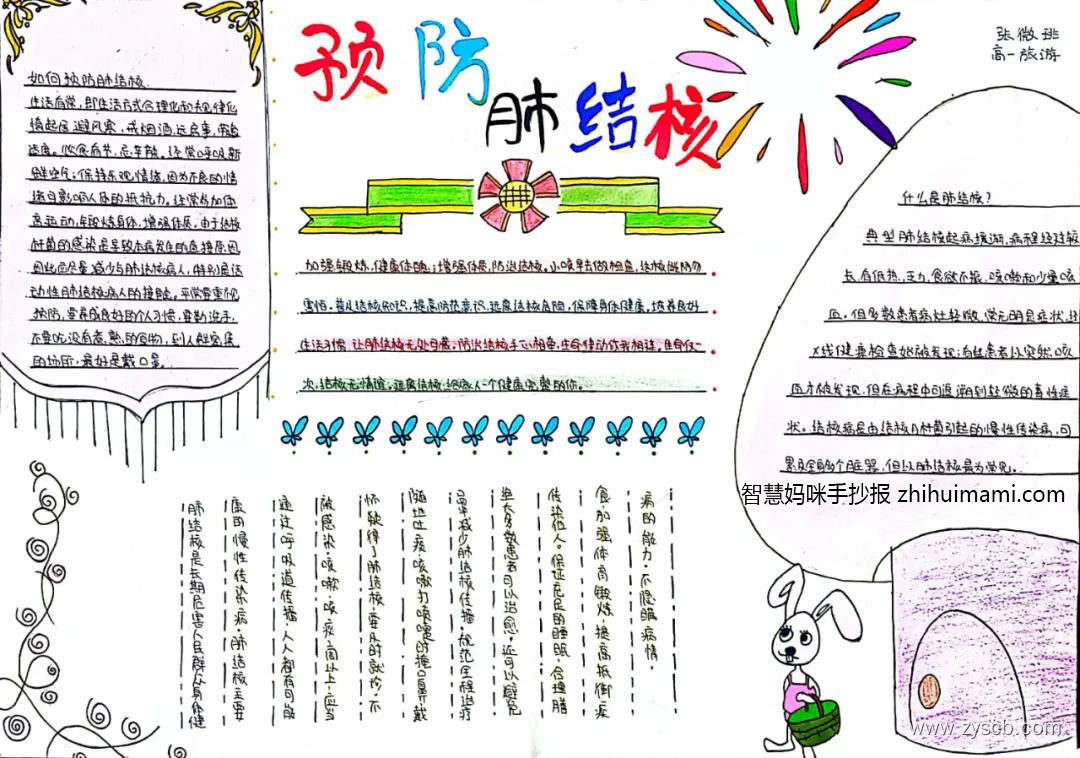 预防
肺结核
张微
高一旅游
如何预防肺结核
生活有常,即生活方式合理化和规律化
慎起居避风寒,戒烟酒,远房事,劳逸
适度。饮食有节,忌辛辣。经常呼吸新
鲜空气;保持乐观情绪,因为不良的情
绪可影响人体的抵抗力。让常参加体
育运动,锻炼身体,增强体质。由于结核
杆菌的感染是导致本病发生的直接原因
因此应尽量减少与肺结核病人,特别是活
动性肺结核病人的接触。平常要重视
预防,要养成良好的个人习惯,要勤洗手,
不要吃没有煮熟的食物,到人群密集
的场所,最好是戴口罩。
加强锻炼,健康体魄;增强体质,防治结核。小咳早去做检查,结核能防勿
害怕。普及结核知识,提高防范意识,远离结核危险,保障身体健康,培养良好
生活习惯,让肺结核无处可藏。防治结核手心相牵,生命律动你我相连。生命仅一
次,结核无情谊,远离结核,给做人一个健康完整的你。
什么是肺结核?
典型肺结核起病缓渐,病程经过较
长,有低热,乏力,食欲不振,咳嗽和少量咯
血。但多数患者病灶轻微,常无明显症状,经
X线健康检查始被发现;有些患者以突然咯
血才被发现,但在病程中可追溯到轻微的毒性症
状。结核病是由结核杆菌引起的慢性传染病,可
累及全身多个脏器,但以肺结核最为常见。
智慧妈咪手抄报 zhihuimami.com
肺结核是长期危害人民群众身体健
康的慢性传染病,肺结核主要
通过呼吸道传播,人人都有可能
被感染,咳嗽,咳痰两周以上,应当
怀疑得了肺结核,要及时就诊,不
随地吐痰,咳嗽打喷嚏时掩口鼻,戴
口罩减少肺结核传播,规范全程治疗
绝大多数患者可以治愈,还可以避免
传染他人。保证充足的睡眠,合理膳
食,加强体育锻炼,提高抵御疾
病的能力。不隐瞒病情。
www.zyscb.com